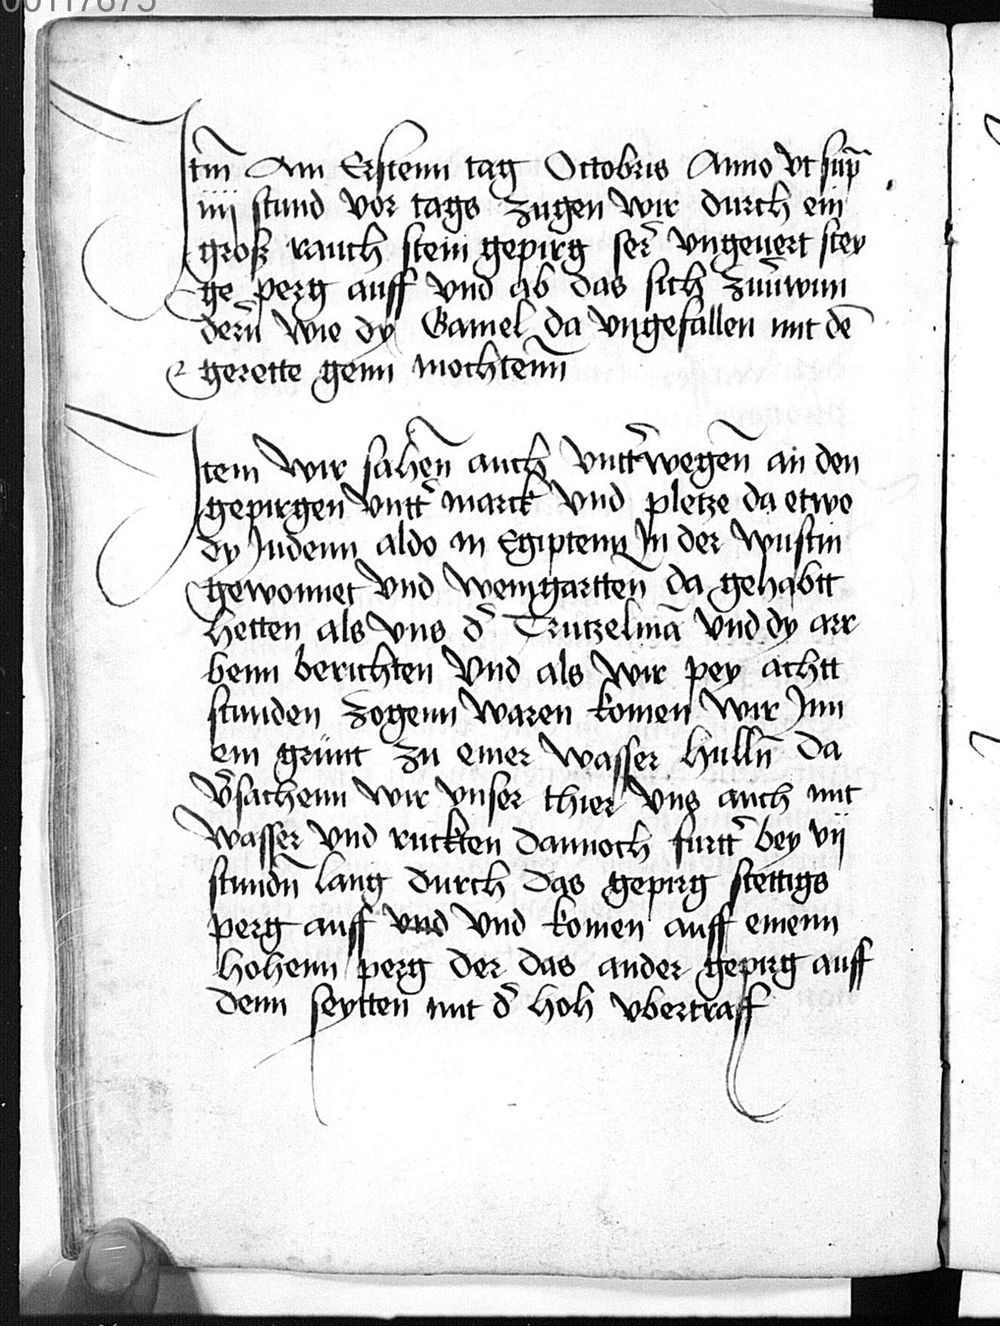 Itm̃ Am Erstenn tag Octobris Anno vt sup̃
iiij stund vor tags zugen wir durch ein
groß rauch stein gepirg ser̃ vngeuert stey
ge perg auff vnd ab das sich zuũwun
derñ wie dy Gamel da vngefallen mit dē
gerette genn mochtenn̄
Item wir sahen̄ auch vntt̃wegen̄ an den
gepirgen vntt̃ marck vnd pletze da etwo
dy Judenn aldo in Egiptenn Jn der wustin
gewonnet vnd weingartten̄ da gehabtt
hetten als vns d̃ Trutzelmā vnd dy arr
benn berichten vnd als wir pey achtt
stunden zogenn waren komen wir Jnn
ein grünt zu einer wasser hulln̄ da
ṽsachenn wir vnser thier vns auch mit
wasser vnd ruckten dannoch furtt̃ bey vij
stundn̄ lang durch das gepirg stettigs
perg auff vnd vnd komen auff einenn
hohenn perg der das ander gepirg auff
denn seytten mit d̃ hoh vbertraff